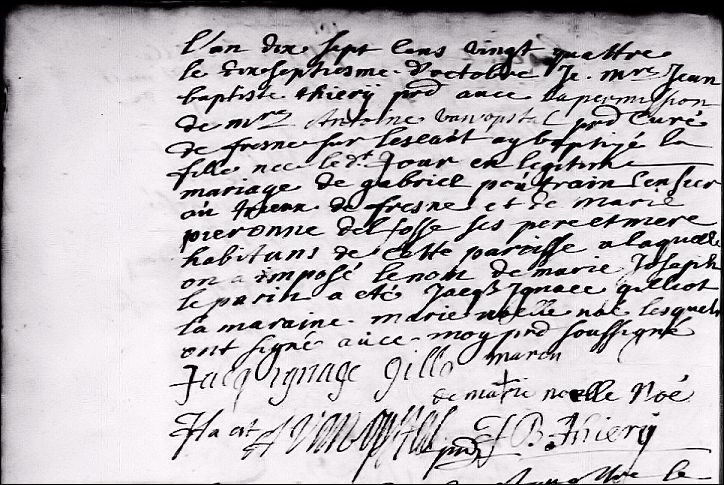 L'an dix sept cens vingt quattre
le dixseptiesme d'octobre Je mre Jean
baptiste thierÿ prb avec la permission
de mre Antoine vanopstal prb Curé
de fresne sur lescaut ay baptizé la
fille nee le dt Jour en legitime
mariage de gabriel poutrain Censeur
au de fresne et de marie
pieronne delfosse ses pere et mere
habitans de Cette paroisse a laquelle
on a imposé le nom de marie Joseph
le parin a eté Jacq Ignace gilliot
la maraine marie noelle noé lesquels
ont signé avec moy prb soussigné
Jacq ignage gillo marcq
de marie noelle Noé
Ita est A vanopstal J B Thierÿ
prb
quattre le